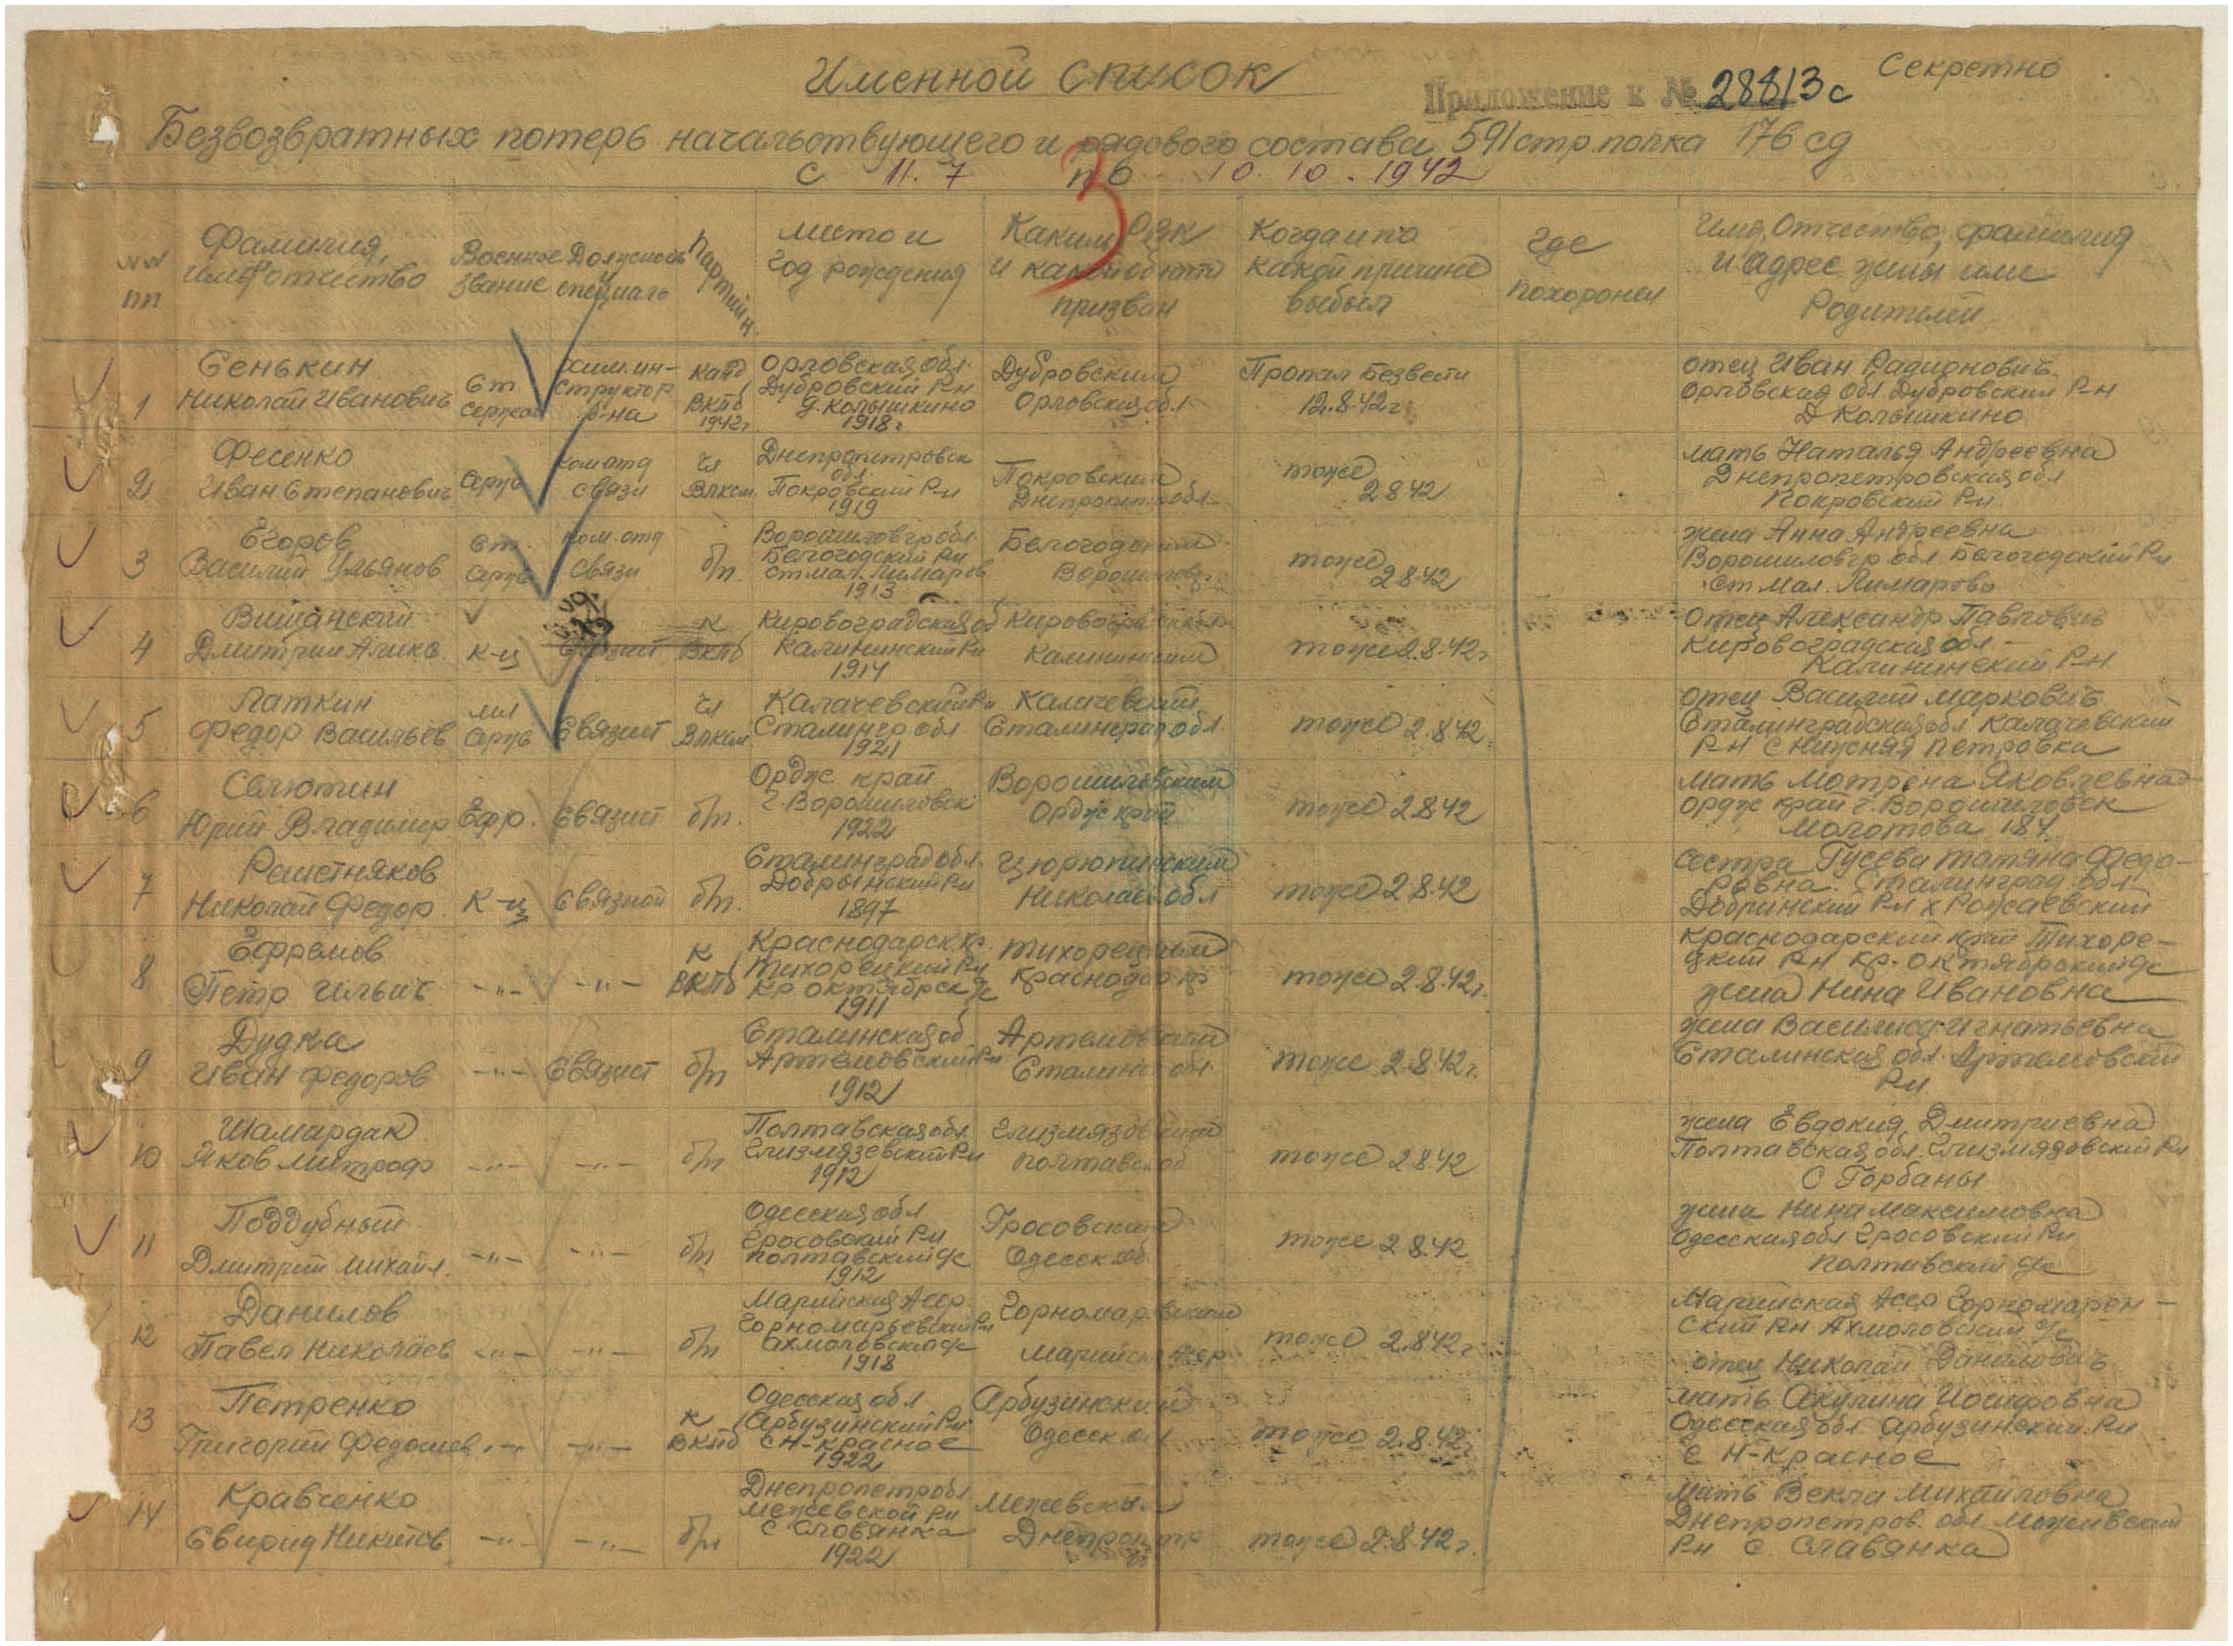 Секретно
Именной список
Приложение к № 28813с
Безвозвратных потерь начальствующего и рядового состава 591 стр. полка 176 сд
с 11. 7 по 10. 10. 1942
3
№№ пп
Фамилия, имя отчество
Военное звание
Должность специал.
Партийн.
место и год рождения
Каким РВК и какой области призван
Когда и по какой причине выбыл
Где похоронен
Имя, Отчество, фамилия и адрес жены или Родителей
1
Сенькин
Николай Иванович
Ст. сержан
хим. ин-
структор
б-на
канд
ВКПб
1942г.
Орловская обл.
Дубровский Р-н
д. Колышкино
1918г
Дубровским
Орловская обл.
Пропал Безвести
12.8.42г.
отец Иван Радионович
Орловская обл Дубровский Р-н
Д Колышкино
2
Фесенко
Иван Степанович
серж
ком отд
связи
чл
Влксм
Днепропетровск
обл
Покровский Р-н
1919
Покровским
Днепропетр обл.
тоже
2 8 42
мать Наталья Андреевна
Днепропетровская обл
Покровский Р-н
3
Егоров
Василий Ульянов
Ст.
серж
ком. отд
связи
б/п.
Ворошиловгр обл
Белогодский Р-н
ст мал. Лимарово
1913
Белогодским
Ворошиловг.
тоже
2 8 42
жена Анна Андреевна
Ворошиловгр обл Белогодский Р-н
ст Мал. Лимарово
4
Вишанский
Дмитрий Алекс.
к-ц
связист
к
ВКПб
Кировоградская об
Калининский Р-н
1914
Кировоградской
Калининским
тоже 2.8.42г
отец Александр Павлович
Кировоградская обл -
Калининский Р-н
5
Латкин
Федор Васильев
мл
серж
связист
чл
Влксм
Калачевский Р-н
Сталингр обл
1921
Калачевский
Сталинград обл.
тоже 2.8.42
отец Василий Маркович
Сталинградская обл Калачевский
Р-н с Нижняя Петровка
6
Селютин
Юрий Владимир
Ефр.
связист
б/п.
Ордж край
г. Ворошиловск
1922
Ворошиловским
Ордж край
тоже 2 8 42
мать Мотрена Яковлевна
Ордж край г. Ворошиловск
Молотова 187
7
Решетняков
Николай Федор.
К-ц
связной
б/п.
Сталинград обл.
Добрынский Р-н
1897
Цюрюпинским
Николаев обл
тоже 2 8.42
сестра Гусева Татяна Федо-
ровна. Сталинград. обл
Добринский Р-н х Рожаевский
8
Ефремов
Петр Ильич
-"-
-"-
к
ВКПб
Краснодарск. кр.
Тихорецкий Р-н
Кр октябрск с/с
1911
Тихорецким
Краснодар кр
тоже 2.8.42г.
Краснодарский край Тихоре-
цкий Р-н кр. октябрский с/с
жена Нина Ивановна
9
Дудка
Иван Федоров
-"-
связист
б/п
Сталинская об
Артемовский Р-н
1912
Артемовский
Сталинс обл
тоже 2.8.42г.
жена Василиса Игнатьевна
Сталинская обл. Артемовский
Р-н
10
Шамардак
Яков Митроф
-"-
-"-
б/п
Полтавская обл.
Гельмязевский Р-н
1912
Полтавск об
тоже 2 8.42
жена Евдокия Дмитриевна
Полтавская обл.
С Горбаны
11
Поддубный
Дмитрий Михайл.
-"-
-"-
б/п
Одесская обл
Гросовский Р-н
Полтавский с/с
1912
Гросовским
Одесск об.
тоже 2 8.42
жена Нина Максимовна
Одесская обл Гросовский Р-н
Полтавский с/с
12
Данилов
Павел Николаев
-"-
-"-
б/п
Марийская Асср
Горномарьевский Р-н
Ахмаловский с/с
1918
Горномаревский
Марийск асср
тоже 2.8.42г
Марийская Асср Горномарен-
ский Р-н Ахмоловский с/с
отец Николай Данилович
13
Петренко
Григорий Федосиев
-"-
-"-
к
ВКПб
Одесская обл
Арбузинский Р-н
с Н-Красное
1922
Арбузинским
Одесск обл
тоже 2.8.42г
мать Акулина Иосифовна
Одесская обл Арбузинский Р-н
с Н-Красное
14
Кравченко
Свирид Никитов
-"-
-"-
б/п
Днепропет обл
Межевской Р-н
с Словянка
1922
Межевским
Днепропетр
тоже 2.8.42г.
мать Векла Михайловна
Днепропетров. обл Межевский
Р-н с Славянка